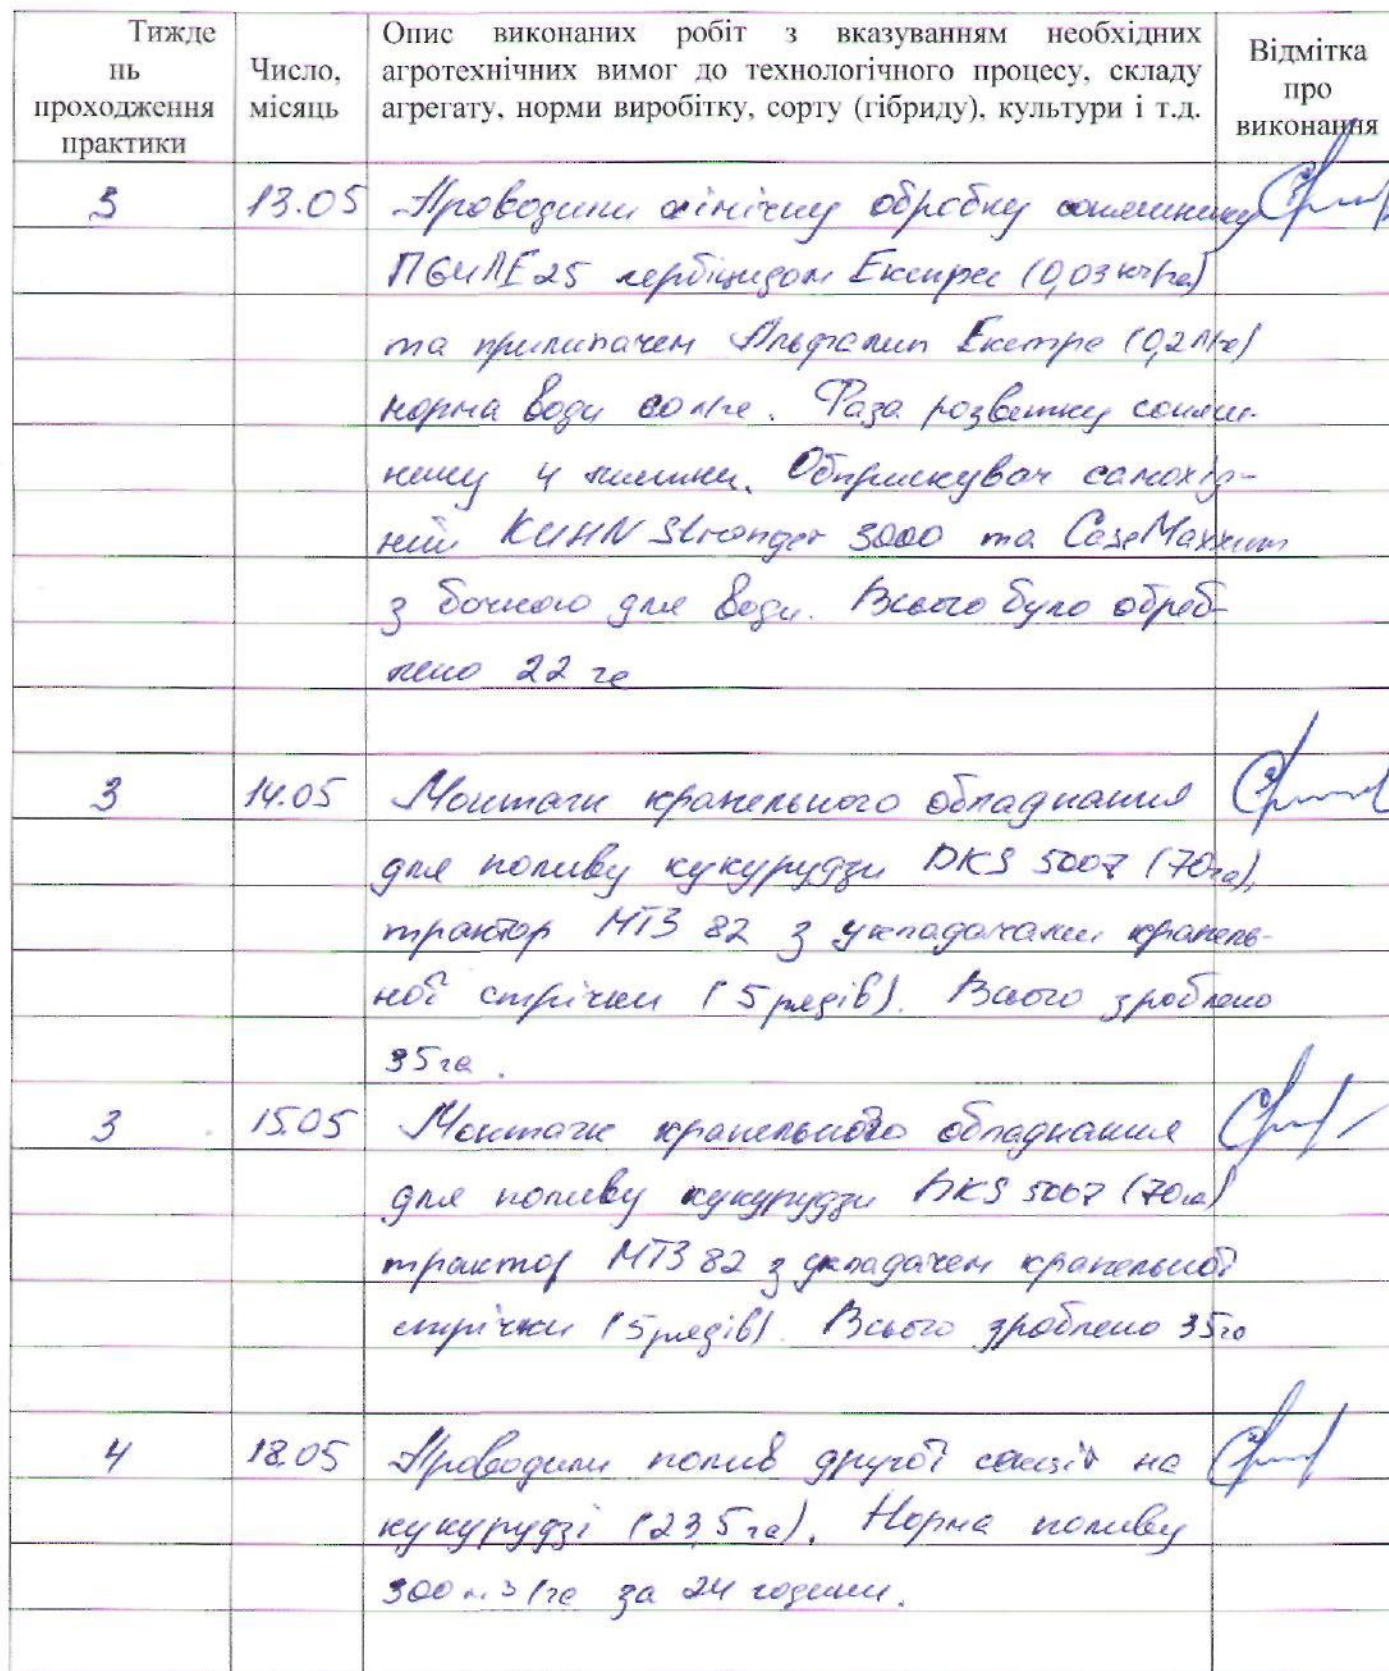 Тижде
нь
проходження
практики
Число,
місяць
Опис виконаних робіт з вказуванням необхідних
агротехнічних вимог до технологічного процесу, складу
агрегату, норми виробітку, сорту (гібриду), культури і т.д.
Відмітка
про
виконання
3 13.05 Проводили хімічну обробку соняшнику
П64ЛЕ25 гербіцидом Експрес (0,03 кг/га)
та прилипачем Альфалип Екстра (0,2 л/га)
норма води л/га. Фаза розвитку соняш-
нику 4 листки. Обприскувач самохід-
ний KUHN Stronger 3000 та Case Maxxum
з бочкою для води. Всього було оброб-
лено 22 га
3 14.05 Монтаж крапельного обладнання
для поливу кукурудзи DKS (70га),
трактор МТЗ 82 з укладачами крапель-
ної стрічки (5 рядів). Всього зроблено
35га.
3 15.05 Монтаж крапельного обладнання
для поливу кукурудзи DKS (70га)
трактор МТЗ 82 з укладачем крапельної
стрічки (5 рядів). Всього зроблено 35га
4 18.05 Проводили полив другої секції на
кукурудзі (23,5 га). Норма поливу
300 м3/га за 24 години.